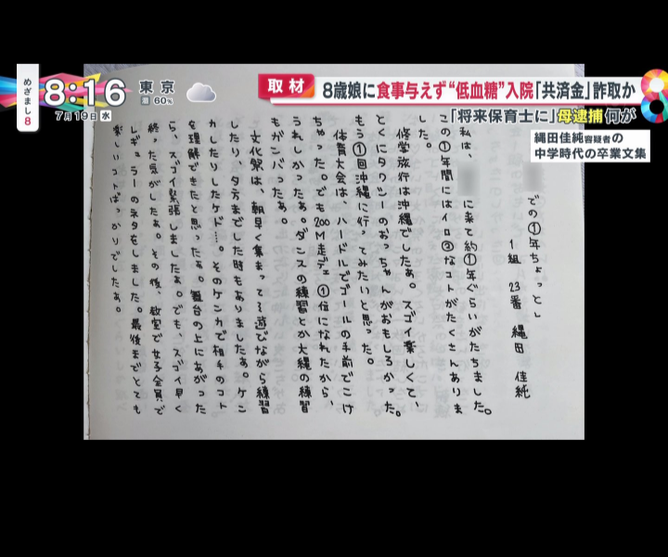 めざまし8
8:16
7月19日水
東京
60%
取材
8歳娘に食事与えず“低血糖”入院「共済金」詐取か
「将来保育士に」母逮捕 何が
縄田佳純容疑者の
中学時代の卒業文集
での①年ちょっと」
1組 23番 縄田 佳純
私は、 に来て約①年ぐらいがたちました。
この①年間にはイロ②なコトがたくさんありま
した。
修学旅行は沖縄でしたぁ。スゴイ楽しくて、
とくにタクシーのおっちゃんがおもしろかった。
もう①回沖縄に行ってみたいと思った。
体育大会は、ハードルでゴールの手前でこけ
ちゃった。でも200M走デェ①位になれたから、
うれしかったぁ。ダンスの練習とか大縄の練習
もガンバッたぁ。
文化祭は、朝早く集まって〜遊びながら練習
したり、夕方までした時もありましたぁ。ケン
カしたりしたケド…。そのケンカで相手のコト
を理解できたと思ったぁ。舞台の上にあがった
ら、スゴイ緊張しましたぁ。でも、スゴイ早く
終った気がしたぁ。その後、教室で女子全員で
レギュラーのネタをしました。最後までとても
楽しいコトばっかりでしたぁ。